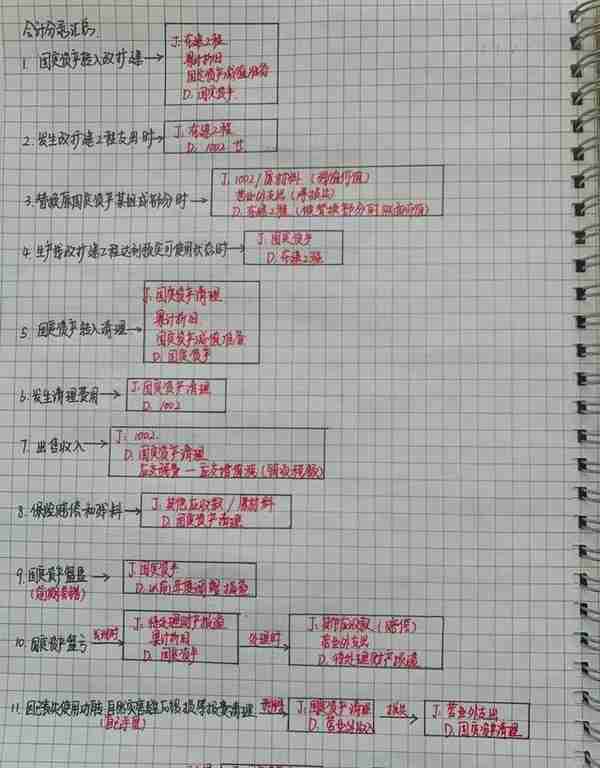 会计分录汇总
1. 固定资产转入改扩建
J: 在建工程
累计折旧
固定资产减值准备
D. 固定资产
2. 发生改扩建工程支出时
J. 在建工程
D. 1002 等
3. 替换原固定资产某组成部分时
J. 1002/原材料 (残值价值)
营业外支出 (净损失)
D. 在建工程 (被替换部分的账面价值)
4. 生产线改扩建工程达到预定可使用状态时
J. 固定资产
D. 在建工程
5. 固定资产转入清理
J. 固定资产清理
累计折旧
固定资产减值准备
D. 固定资产
6. 发生清理费用
J: 固定资产清理
D. 1002
7. 出售收入
J: 1002.
D. 固定资产清理
应交税费 — 应交增值税 (销项税额)
8. 保险赔偿和残料
J. 其他应收款 / 原材料
D. 固定资产清理
9. 固定资产盘盈
(前期差错)
J. 固定资产
D. 以前年度损益调整
10. 固定资产盘亏
发现时
J. 待处理财产损溢
累计折旧
D. 固定资产
处理时
J: 其他应收款 (赔偿)
营业外支出
D. 待处理财产损溢
11. 因已丧失使用功能、自然灾害
J: 固定资产清理
D. 营业外收入
损失
J: 营业外支出
D. 固定资产清理